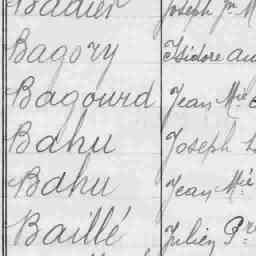 Badier Joseph Jn M
Bagory Isidore au
Bagourd Jean Mie
Bahu Joseph
Bahu Jean Mié
Baillé Julien Pre